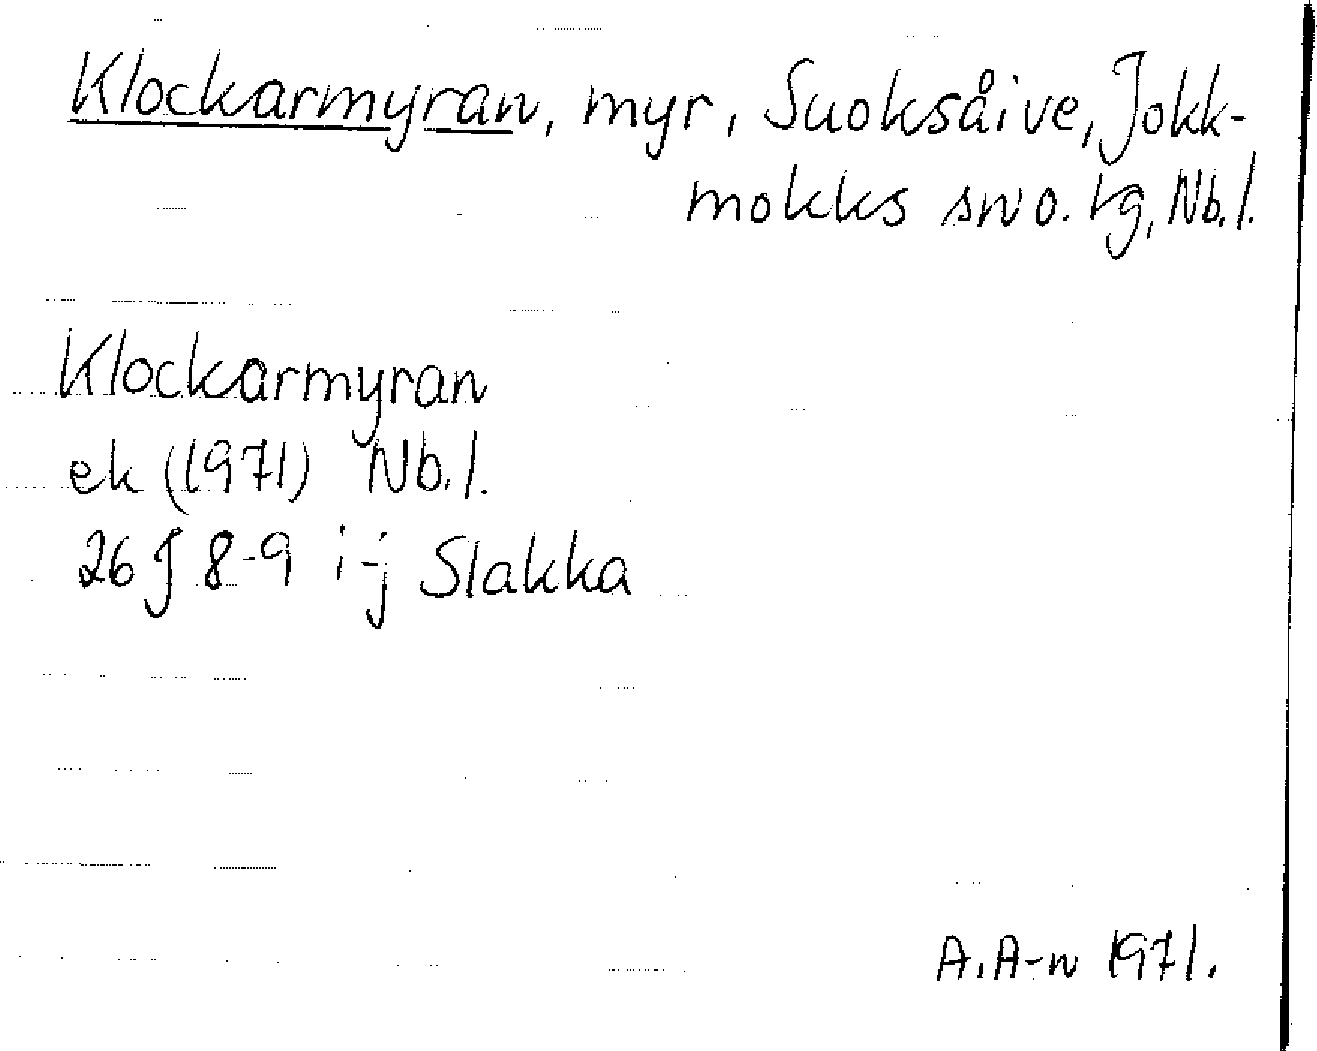 Klockarmyran, myr, Suoksåive, Jokk-
mokks sn o. tg, Nb.l.
Klockarmyran
ek (1971) Nb.l.
26 J 8-9 i-j Slakka
A.A-n 1971.